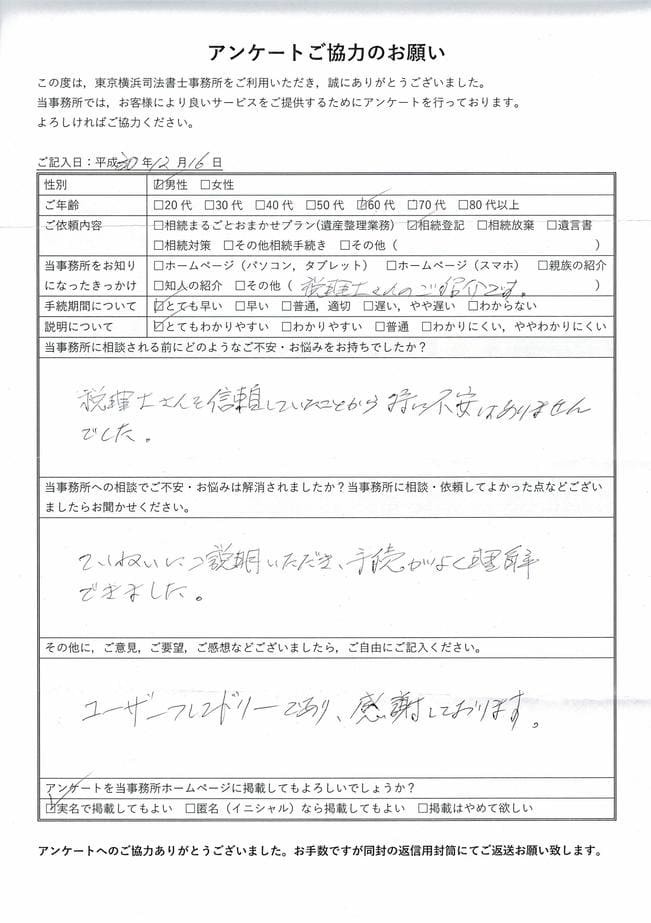 アンケートご協力のお願い
この度は，東京横浜司法書士事務所をご利用いただき，誠にありがとうございました。
当事務所では，お客様により良いサービスをご提供するためにアンケートを行っております。
よろしければご協力ください。
ご記入日：平成30年12月16日
性別 ☑男性 □女性
ご年齢 □20代 □30代 □40代 □50代 ☑60代 □70代 □80代以上
ご依頼内容 □相続まるごとおまかせプラン(遺産整理業務) ☑相続登記 □相続放棄 □遺言書
□相続対策 □その他相続手続き □その他（ ）
当事務所をお知り □ホームページ（パソコン，タブレット） □ホームページ（スマホ） □親族の紹介
になったきっかけ □知人の紹介 □その他（ 税理士さんのご紹介です。 ）
手続期間について ☑とても早い □早い □普通，適切 □遅い，やや遅い □わからない
説明について ☑とてもわかりやすい □わかりやすい □普通 □わかりにくい，ややわかりにくい
当事務所に相談される前にどのようなご不安・お悩みをお持ちでしたか？
税理士さんを信頼していたことから特に不安はありません
でした。
当事務所への相談でご不安・お悩みは解消されましたか？当事務所に相談・依頼してよかった点などござい
ましたらお聞かせください。
ていねいにご説明いただき、手続がよく理解
できました。
その他に，ご意見，ご要望，ご感想などございましたら，ご自由にご記入ください。
ユーザーフレンドリーであり、感謝しております。
アンケートを当事務所ホームページに掲載してもよろしいでしょうか？
☑実名で掲載してもよい □匿名（イニシャル）なら掲載してもよい □掲載はやめて欲しい
アンケートへのご協力ありがとうございました。お手数ですが同封の返信用封筒にてご返送お願い致します。